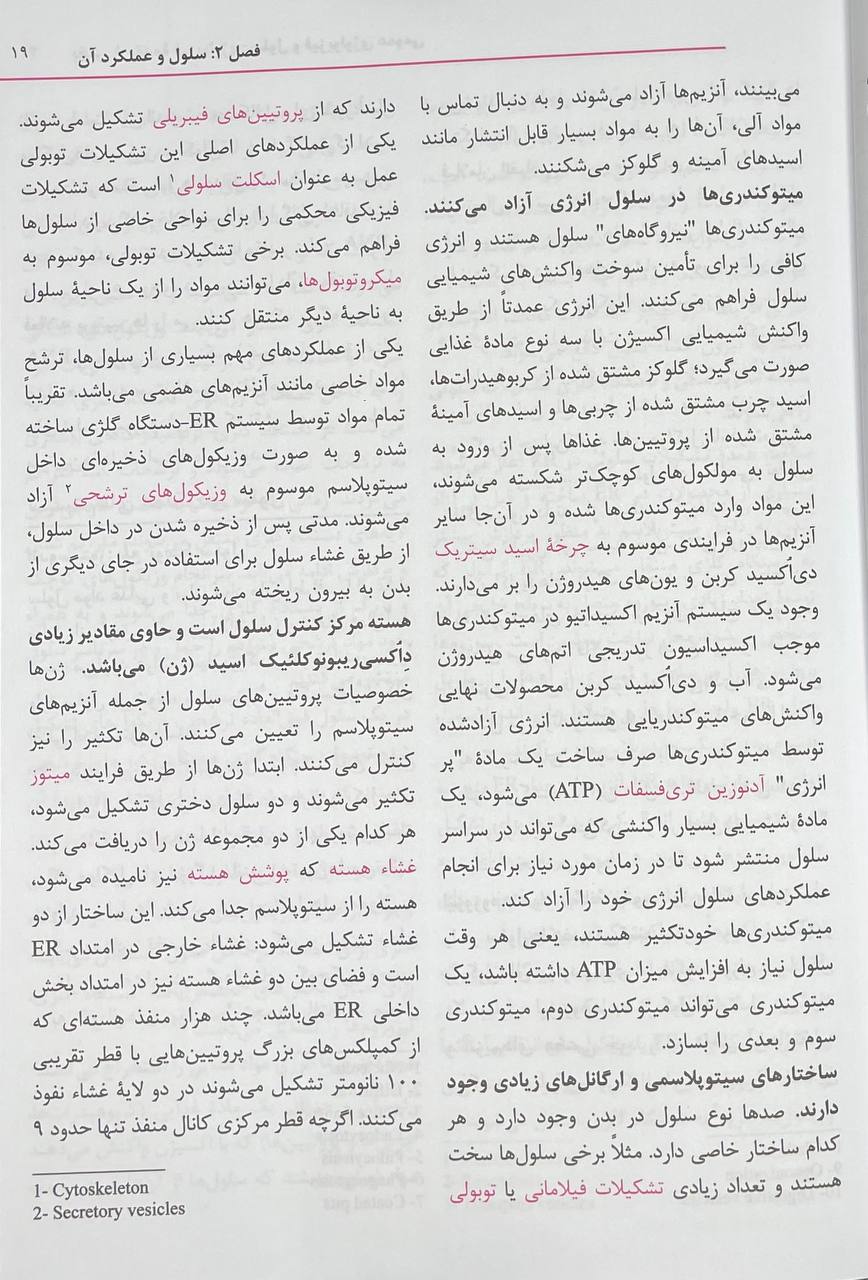 فصل ۲: سلول و عملکرد آن
۱۹
می‌بینند، آنزیم‌ها آزاد می‌شوند و به دنبال تماس با
مواد آلی، آن‌ها را به مواد بسیار قابل انتشار مانند
اسیدهای آمینه و گلوکز می‌شکنند.
میتوکندری‌ها در سلول انرژی آزاد می‌کنند.
میتوکندری‌ها "نیروگاه‌های" سلول هستند و انرژی
کافی را برای تأمین سوخت واکنش‌های شیمیایی
سلول فراهم می‌کنند. این انرژی عمدتاً از طریق
واکنش شیمیایی اکسیژن با سه نوع مادهٔ غذایی
صورت می‌گیرد؛ گلوکز مشتق شده از کربوهیدرات‌ها،
اسید چرب مشتق شده از چربی‌ها و اسیدهای آمینهٔ
مشتق شده از پروتیین‌ها. غذاها پس از ورود به
سلول به مولکول‌های کوچک‌تر شکسته می‌شوند،
این مواد وارد میتوکندری‌ها شده و در آن‌جا سایر
آنزیم‌ها در فرایندی موسوم به چرخهٔ اسید سیتریک
دی‌اُکسید کربن و یون‌های هیدروژن را بر می‌دارند.
وجود یک سیستم آنزیم اکسیداتیو در میتوکندری‌ها
موجب اکسیداسیون تدریجی اتم‌های هیدروژن
می‌شود. آب و دی‌اُکسید کربن محصولات نهایی
واکنش‌های میتوکندریایی هستند. انرژی آزادشده
توسط میتوکندری‌ها صرف ساخت یک مادهٔ "پر
انرژی" آدنوزین تری‌فسفات (ATP) می‌شود، یک
مادهٔ شیمیایی بسیار واکنشی که می‌تواند در سراسر
سلول منتشر شود تا در زمان مورد نیاز برای انجام
عملکردهای سلول انرژی خود را آزاد کند.
میتوکندری‌ها خودتکثیر هستند، یعنی هر وقت
سلول نیاز به افزایش میزان ATP داشته باشد، یک
میتوکندری می‌تواند میتوکندری دوم، میتوکندری
سوم و بعدی را بسازد.
ساختارهای سیتوپلاسمی و ارگانل‌های زیادی وجود
دارند. صدها نوع سلول در بدن وجود دارد و هر
کدام ساختار خاصی دارد. مثلاً برخی سلول‌ها سخت
هستند و تعداد زیادی تشکیلات فیلامانی یا توبولی
دارند که از پروتیین‌های فیبریلی تشکیل می‌شوند.
یکی از عملکردهای اصلی این تشکیلات توبولی
عمل به عنوان اسکلت سلولی۱ است که تشکیلات
فیزیکی محکمی را برای نواحی خاصی از سلول‌ها
فراهم می‌کند. برخی تشکیلات توبولی، موسوم به
میکروتوبول‌ها، می‌توانند مواد را از یک ناحیهٔ سلول
به ناحیهٔ دیگر منتقل کنند.
یکی از عملکردهای مهم بسیاری از سلول‌ها، ترشح
مواد خاصی مانند آنزیم‌های هضمی می‌باشد. تقریباً
تمام مواد توسط سیستم ER-دستگاه گلژی ساخته
شده و به صورت وزیکول‌های ذخیره‌ای داخل
سیتوپلاسم موسوم به وزیکول‌های ترشحی۲ آزاد
می‌شوند. مدتی پس از ذخیره شدن در داخل سلول،
از طریق غشاء سلول برای استفاده در جای دیگری از
بدن به بیرون ریخته می‌شوند.
هسته مرکز کنترل سلول است و حاوی مقادیر زیادی
دِاُکسی‌ریبونوکلئیک اسید (ژن) می‌باشد. ژن‌ها
خصوصیات پروتیین‌های سلول از جمله آنزیم‌های
سیتوپلاسم را تعیین می‌کنند. آن‌ها تکثیر را نیز
کنترل می‌کنند. ابتدا ژن‌ها از طریق فرایند میتوز
تکثیر می‌شوند و دو سلول دختری تشکیل می‌شود،
هر کدام یکی از دو مجموعه ژن را دریافت می‌کند.
غشاء هسته که پوشش هسته نیز نامیده می‌شود،
هسته را از سیتوپلاسم جدا می‌کند. این ساختار از دو
غشاء تشکیل می‌شود: غشاء خارجی در امتداد ER
است و فضای بین دو غشاء هسته نیز در امتداد بخش
داخلی ER می‌باشد. چند هزار منفذ هسته‌ای که
از کمپلکس‌های بزرگ پروتیین‌هایی با قطر تقریبی
۱۰۰ نانومتر تشکیل می‌شوند در دو لایهٔ غشاء نفوذ
می‌کنند. اگرچه قطر مرکزی کانال منفذ تنها حدود ۹
1- Cytoskeleton
2- Secretory vesicles